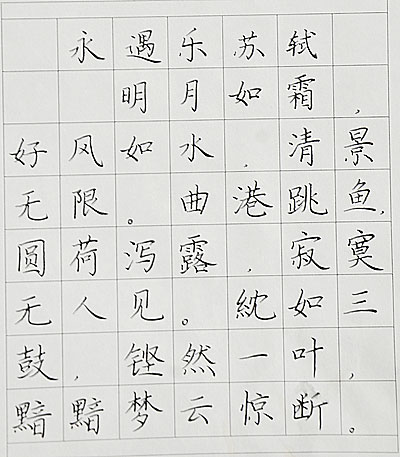 永遇乐苏轼
明月如霜，
好风如水，清景
无限。曲港跳鱼，
圆荷泻露，寂寞
无人见。紞如三
鼓，铿然一叶，
黯黯梦云惊断。